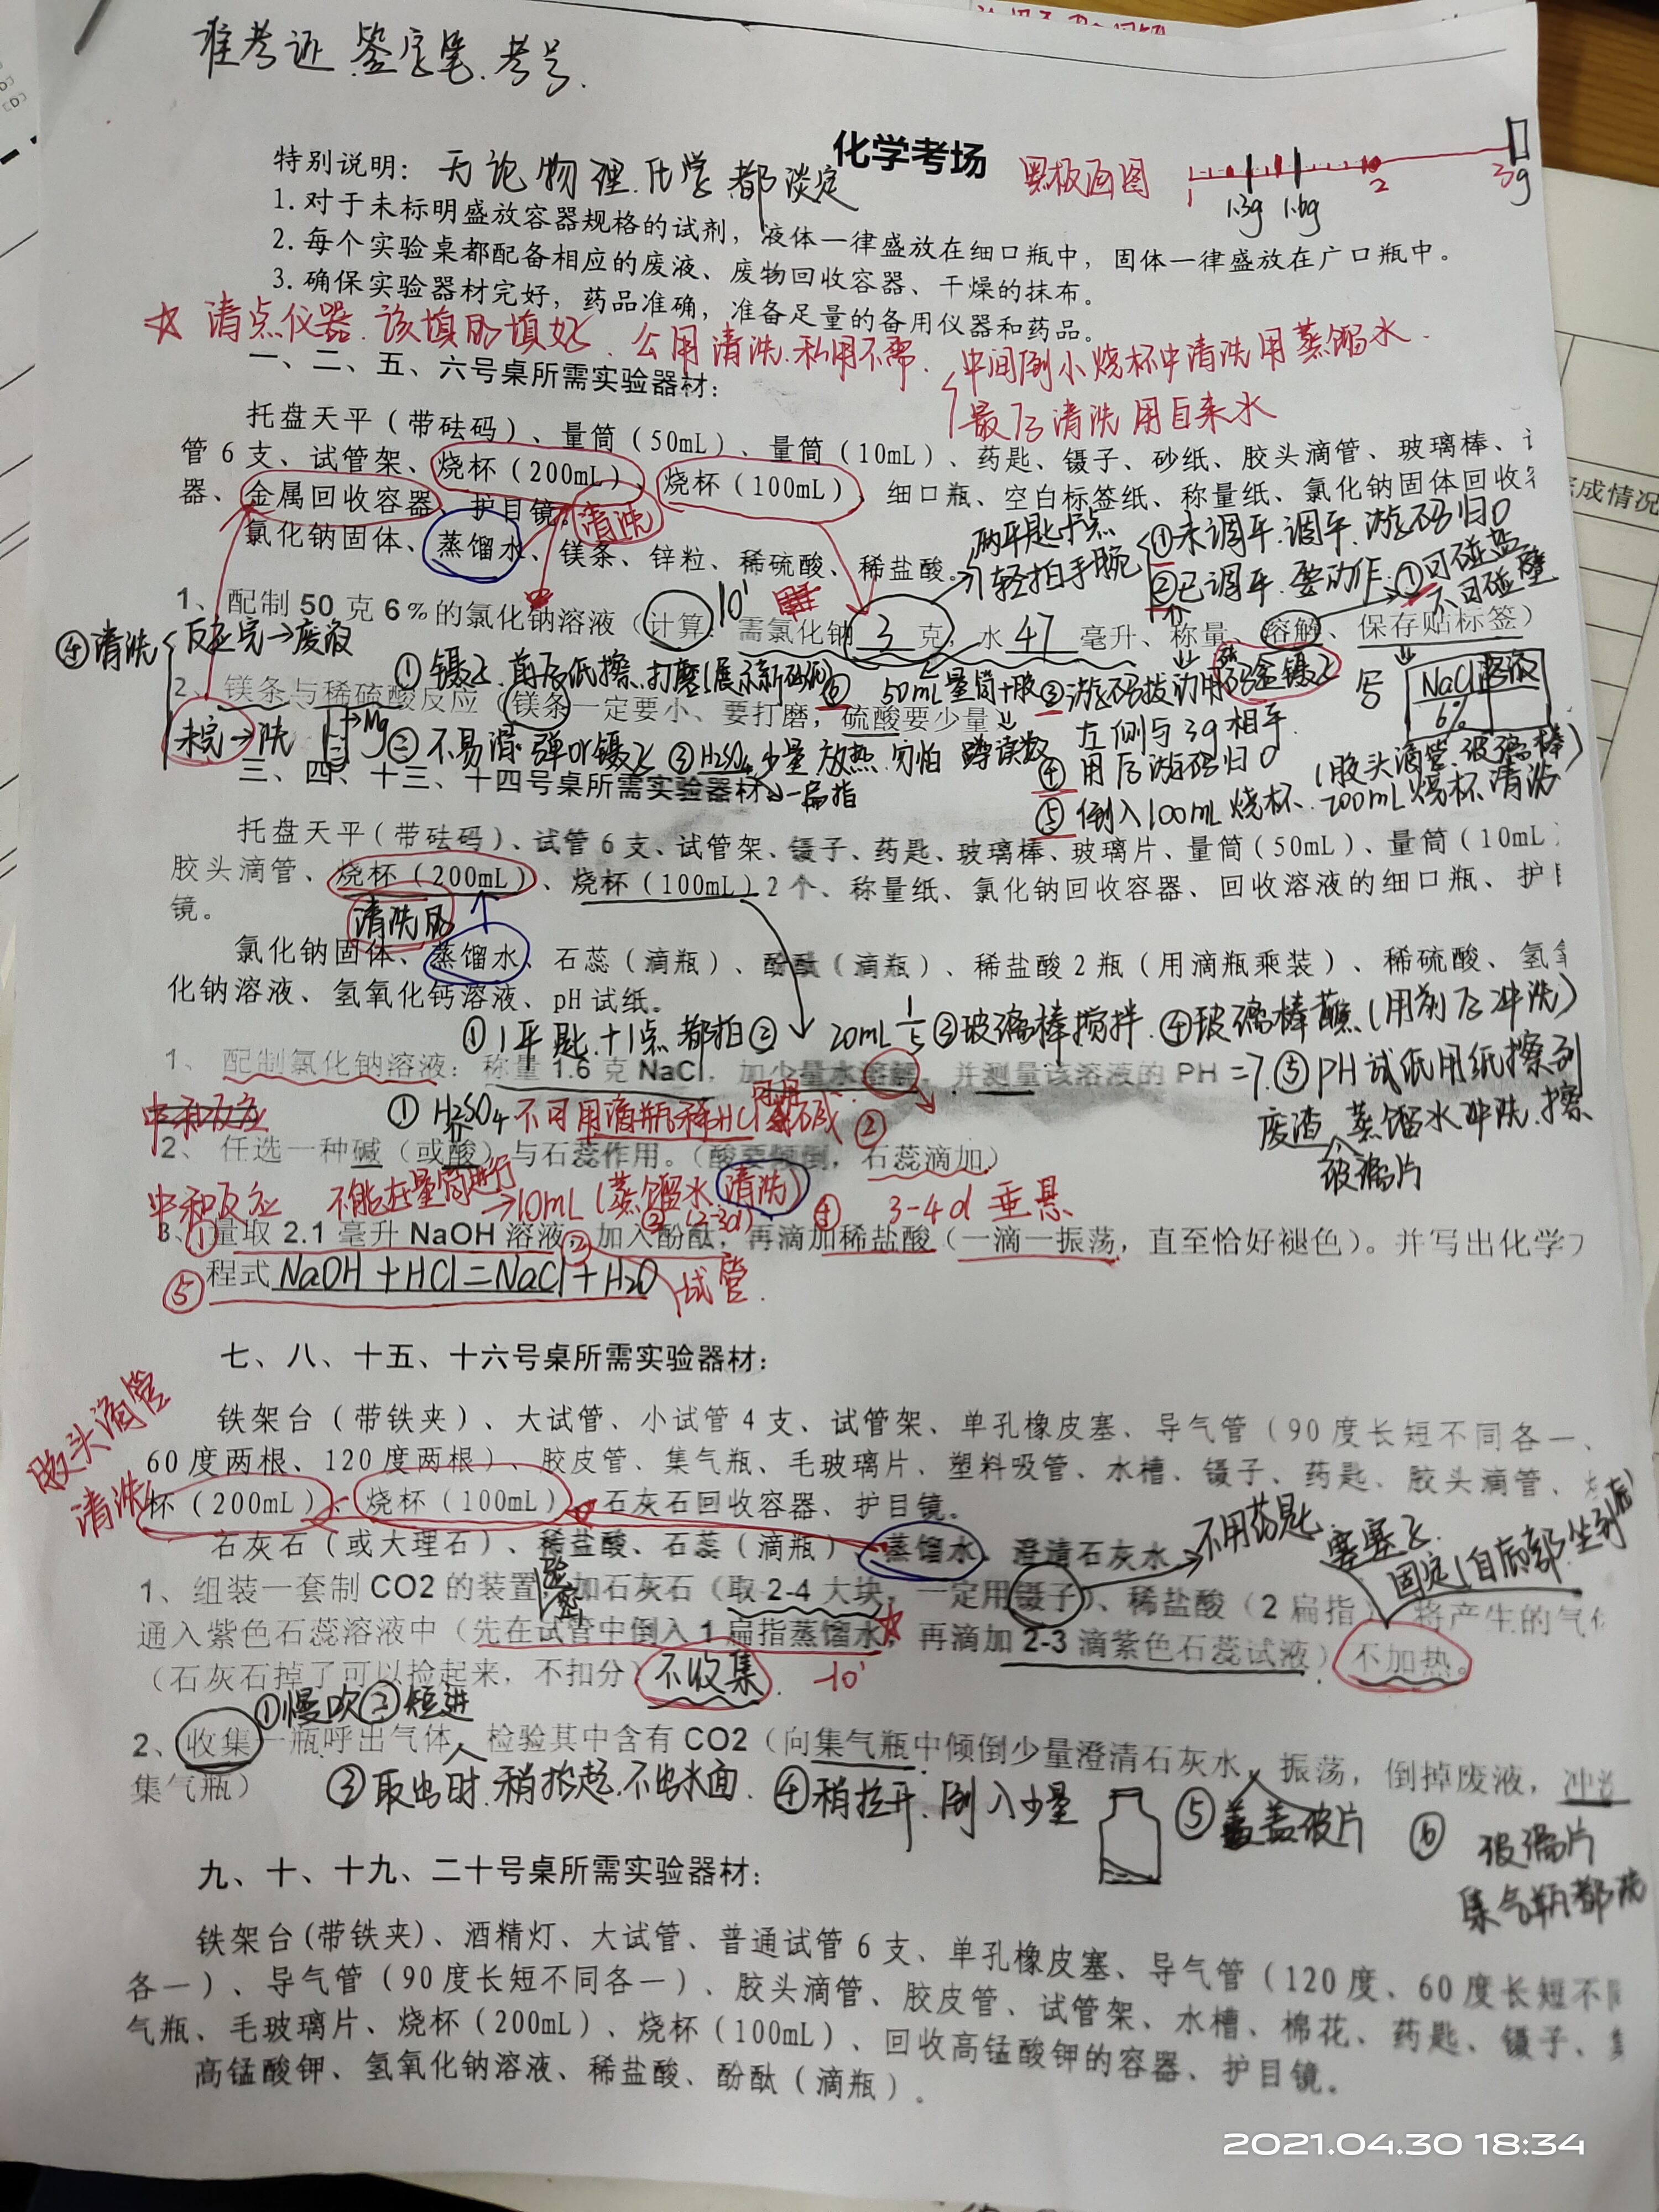 准考证.签字笔.考号.
化学考场
特别说明: 无论物理.化学都淡定
黑板画图
1 2 3g
1.3g 1.6g
1. 对于未标明盛放容器规格的试剂，液体一律盛放在细口瓶中，固体一律盛放在广口瓶中。
2. 每个实验桌都配备相应的废液、废物回收容器、干燥的抹布。
3. 确保实验器材完好，药品准确，准备足量的备用仪器和药品。
☆ 清点仪器.该填的填好. 公用清洗.私用不需.
中间倒小烧杯中清洗用蒸馏水.
最后清洗用自来水
一、二、五、六号桌所需实验器材:
托盘天平（带砝码）、量筒（50mL）、量筒（10mL）、药匙、镊子、砂纸、胶头滴管、玻璃棒、
管6支、试管架、烧杯（200mL）、烧杯（100mL）、细口瓶、空白标签纸、称量纸、氯化钠固体回收
器、金属回收容器、护目镜。
清洗
氯化钠固体、蒸馏水、镁条、锌粒、稀硫酸、稀盐酸。
两平匙+点
轻拍手腕
①未调平.调平.游码归0
②已调平.要动作.
①可碰盐
不可碰壁
10'
1、配制50克6%的氯化钠溶液（计算：需氯化钠3克，水47毫升、称量、溶解、保存贴标签）
④清洗
反应完→废液
未完→洗
①镊子.前后低擦.打磨
50mL量筒+胶
③游码拨动用
镊子
左侧与3g相平
写
NaCl溶液
6%
2、镁条与稀硫酸反应（镁条一定要小、要打磨，硫酸要少量
→Mg
②不易滑.弹or镊子 ③H₂SO₄少量 放热.勿怕 蹲读数
一扁指
④用后游码归0
⑤倒入100mL烧杯.200mL烧杯清洗
(胶头滴管.玻璃棒)
三、四、十三、十四号桌所需实验器材
托盘天平（带砝码）、试管6支、试管架、镊子、药匙、玻璃棒、玻璃片、量筒（50mL）、量筒（10mL
胶头滴管、烧杯（200mL）、烧杯（100mL）2个、称量纸、氯化钠回收容器、回收溶液的细口瓶、护
镜。
清洗用
氯化钠固体、蒸馏水、石蕊（滴瓶）、酚酞（滴瓶）、稀盐酸2瓶（用滴瓶乘装）、稀硫酸、氢
化钠溶液、氢氧化钙溶液、pH试纸。
①1平匙+1点都拍② 20mL ③玻璃棒搅拌.④玻璃棒蘸(用前后冲洗)
1、配制氯化钠溶液：称量1.6克NaCl，加少量水溶解，并测量该溶液的PH =7.⑤PH试纸用纸擦到
废渣 蒸馏水冲洗.擦
玻璃片
中和反应
①H₂SO₄不可用滴瓶稀HCl 可用 碱 ②
2、任选一种碱（或酸）与石蕊作用。（酸要倾倒，石蕊滴加）
中和反应 不能在量筒进行→10mL(蒸馏水 清洗) ④ 3-4d 垂悬
③(2-3d)
3、①量取2.1毫升NaOH溶液，②加入酚酞，再滴加稀盐酸（一滴一振荡，直至恰好褪色）。并写出化学
⑤程式 NaOH+HCl=NaCl+H₂O
试管.
七、八、十五、十六号桌所需实验器材:
胶头滴管
清洗
铁架台（带铁夹）、大试管、小试管4支、试管架、单孔橡皮塞、导气管（90度长短不同各一、
60度两根、120度两根）、胶皮管、集气瓶、毛玻璃片、塑料吸管、水槽、镊子、药匙、胶头滴管、
杯（200mL）、烧杯（100mL）、石灰石回收容器、护目镜。
石灰石（或大理石）、稀盐酸、石蕊（滴瓶）、蒸馏水、澄清石灰水
不用药匙
塞塞子.
固定(自底部.
1、组装一套制CO2的装置，加石灰石（取2-4大块，一定用镊子）、稀盐酸（2扁指），将产生的气
验密
通入紫色石蕊溶液中（先在试管中倒入1扁指蒸馏水，再滴加2-3滴紫色石蕊试液）不加热。
（石灰石掉了可以捡起来，不扣分）不收集. -10'
①慢吹②短进
2、收集一瓶呼出气体，检验其中含有CO2（向集气瓶中倾倒少量澄清石灰水，振荡，倒掉废液，冲
集气瓶）
③取出时.稍抬起.不出水面. ④稍拉开.倒入少量 ⑤盖玻片 ⑥玻璃片
集气瓶都洗
九、十、十九、二十号桌所需实验器材:
铁架台(带铁夹)、酒精灯、大试管、普通试管6支、单孔橡皮塞、导气管（120度、60度长短不
各一）、导气管（90度长短不同各一）、胶头滴管、胶皮管、试管架、水槽、棉花、药匙、镊子、
气瓶、毛玻璃片、烧杯（200mL）、烧杯（100mL）、回收高锰酸钾的容器、护目镜。
高锰酸钾、氢氧化钠溶液、稀盐酸、酚酞（滴瓶）.
2021.04.30 18:34